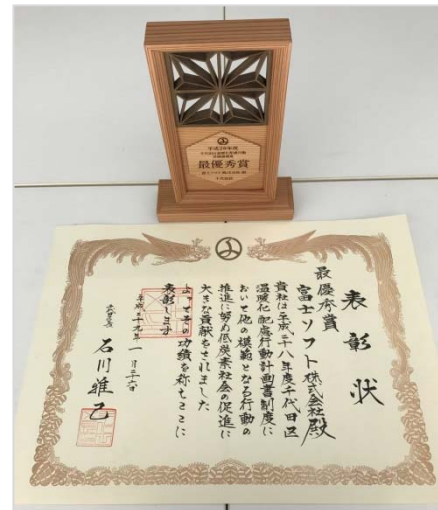 平成28年度
最優秀賞
富士ソフト株式会社 殿
千代田区
表彰状
最優秀賞
富士ソフト株式会社殿
貴社は平成二十八年度千代田区
温暖化配慮行動計画書制度に
おいて他の模範となる行動の
推進に努め低炭素社会の促進に
大きな貢献をされました
よってその功績を称えここに
表彰します
平成二十九年一月二十六日
千代田区長
石川雅己